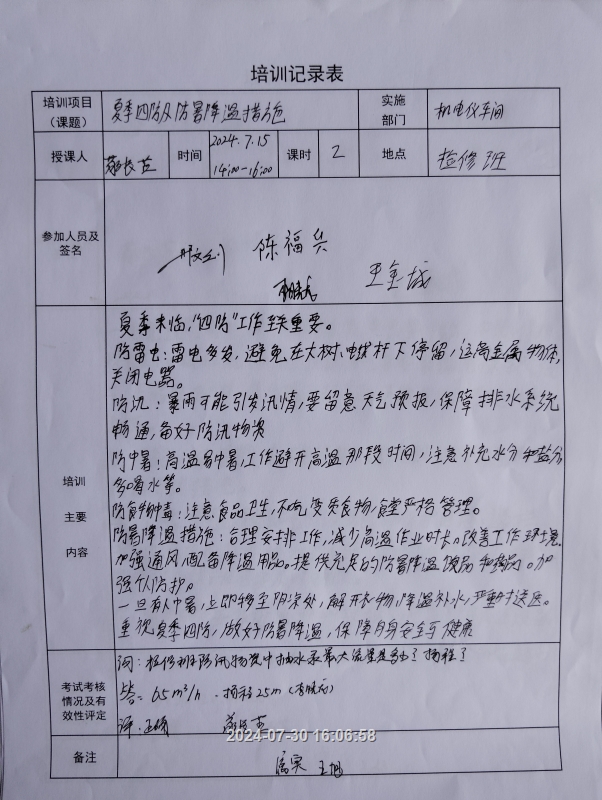 培训记录表
培训项目
（课题）
夏季四防及防暑降温措施
实施
部门
机电仪车间
授课人
时间
2024.7.15
14:00-16:00
课时
2
地点
检修班
参加人员及
签名
陈福兴
王金城
培训
主要
内容
夏季来临,"四防"工作至关重要。
防雷电:雷电多发,避免在大树、电线杆下停留,远离金属物体,
关闭电器。
防汛:暴雨可能引发汛情,要留意天气预报,保障排水系统
畅通,备好防汛物资
防中暑:高温易中暑工作避开高温那段时间,注意补充水分和盐分
多喝水等。
防食物中毒:注意食品卫生,不吃变质食物,食堂严格管理。
防暑降温措施:合理安排工作,减少高温作业时长。改善工作环境,
加强通风,配备降温用品。提供充足的防暑降温饮品和药品。加
强个人防护。
一旦有人中暑,立即移至阴凉处,解开衣物,降温补水,严重时送医。
重视夏季四防,做好防暑降温,保障自身安全与健康
考试考核
情况及有
效性评定
问:检修班防汛物资中抽水泵最大流量是多少?扬程?
答: 65m³/h 、扬程25m
评:正确
备注
属实
2024-07-30 16:06:58